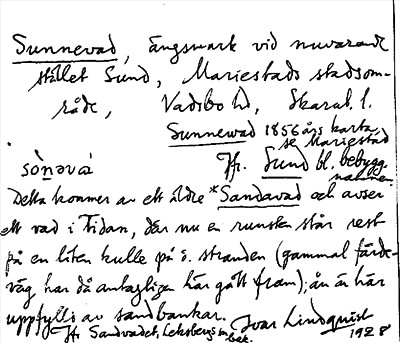 Sunnevad, ängsmark vid nuvarande
stället Sund, Mariestads stadsom-
råde, Vadsbo hd, Skarab. l.
Sunnewad 1856 års karta
se Mariestad
sònəva̍ Jfr. Sund bl. bebygg.
namnen.
Detta kommer av ett äldre *Sandavad och avser
ett vad i Tidan, där nu en runsten står rest
på en liten kulle på ö. stranden (gammal färds-
väg har då antagligen här gått fram); ån är här
uppfylld av sandbankar. Ivar Lindquist
Jfr Sandvadet, Leksbergs sn
bäk. 1928